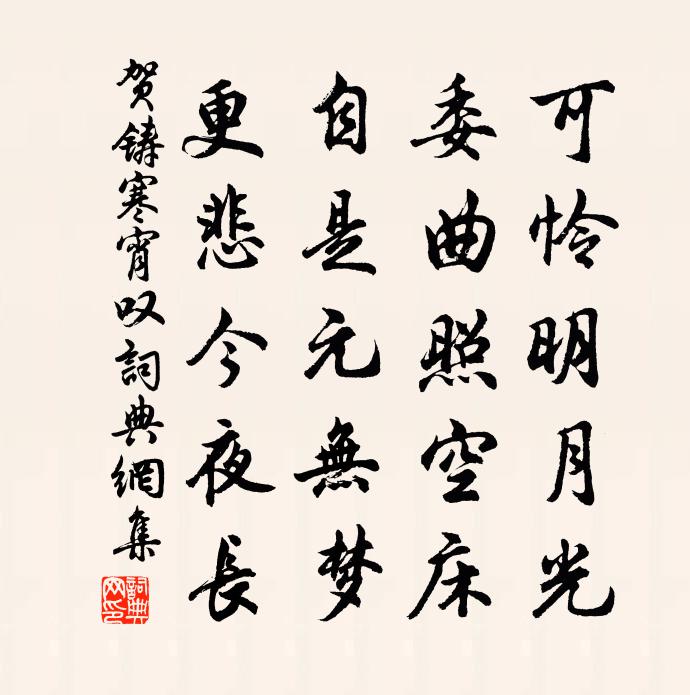 可怜明月光
委曲照空床
自是元無梦
更悲今夜長
贺铸寒宵叹詞典網集
詞典网印